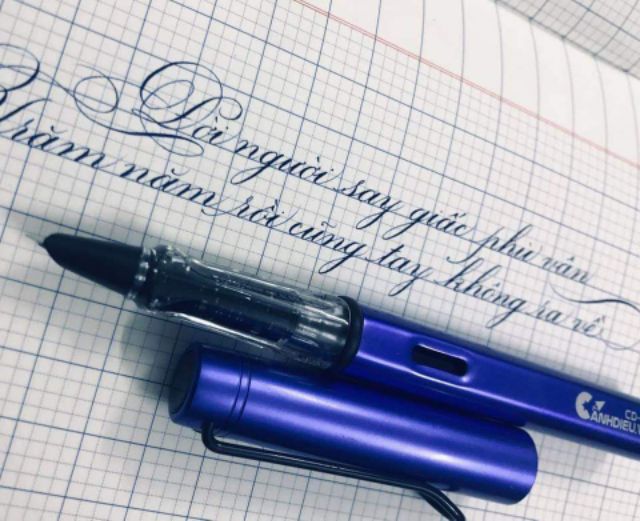 Đời người say giấc phù vân
Trăm năm rồi cũng tay không ra về
CD-
CÁNHDIEU.V